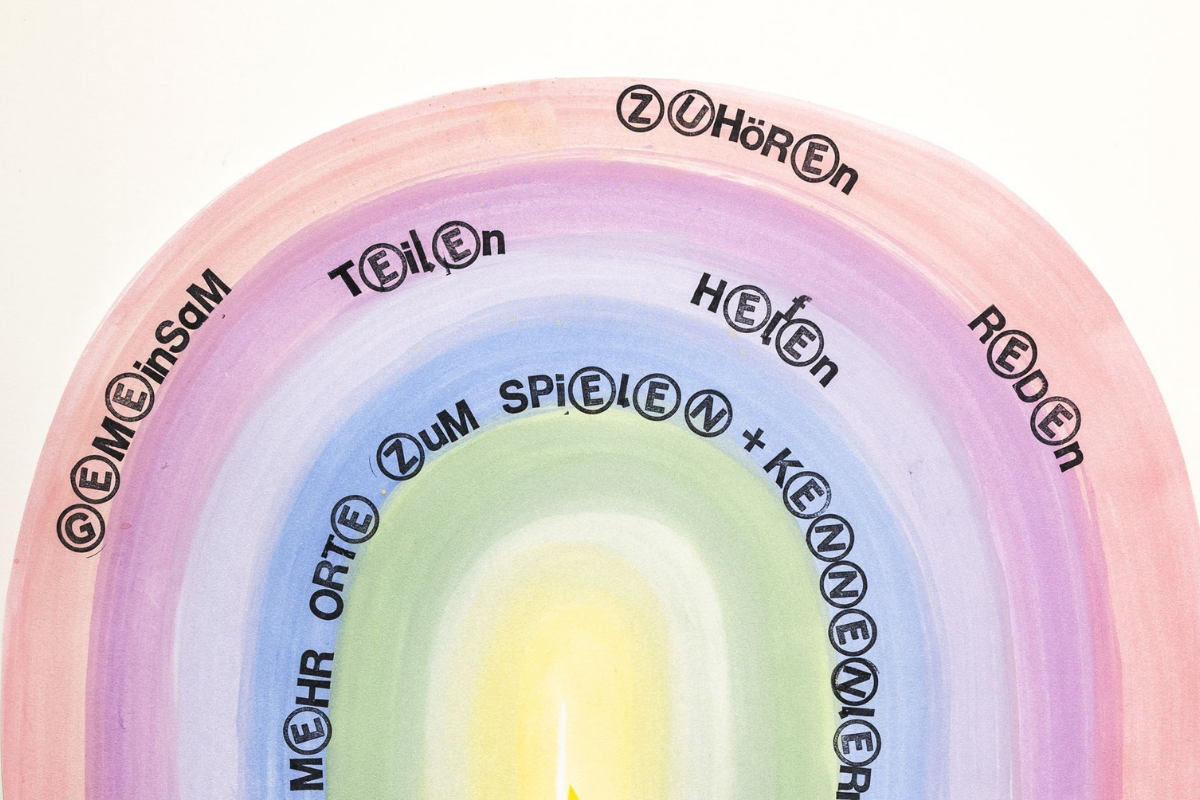 ZUHöREn
TEilEn
GEMEinSaM
HElfEn
REDEn
MEHR ORTE ZuM SPiElEN + KENNENlERn